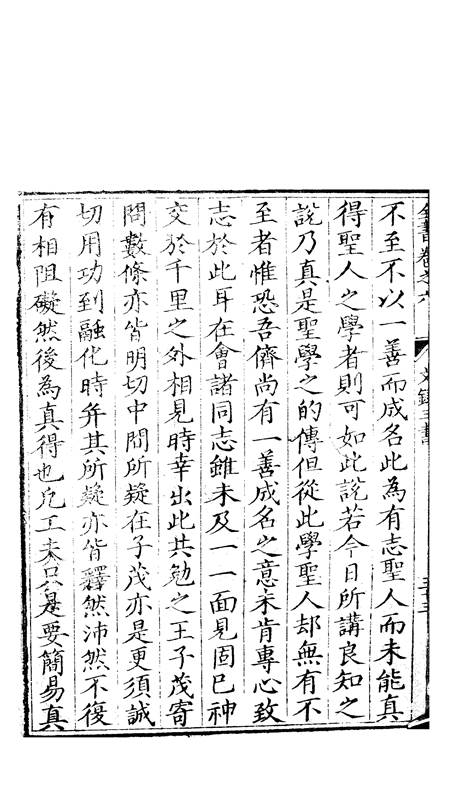 全書卷之六 文錄三書 五十三
不至不以一善而成名此為有志聖人而未能真
得聖人之學者則可如此說若今日所講良知之
說乃真是聖學之的傳但從此學聖人却無有不
至者惟恐吾儕尚有一善成名之意未肯專心致
志於此耳在會諸同志雖未及一一面見固巳神
交於千里之外相見時幸出此共勉之王子茂寄
問數條亦皆明切中間所疑在子茂亦是更須誠
切用功到融化時并其所疑亦皆釋然沛然不復
有相阻礙然後為真得也凡工夫只是要簡易真